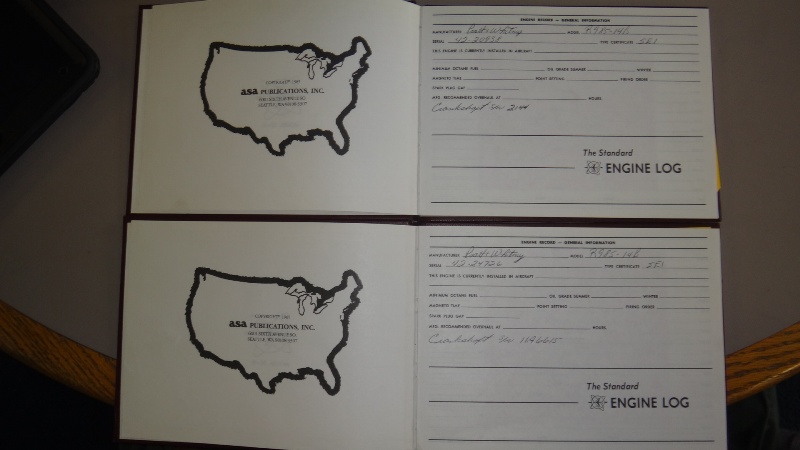 COPYRIGHT 1985
asa PUBLICATIONS, INC.
ENGINE RECORD — GENERAL INFORMATION
MANUFACTURER Pratt & Whitney MODEL R985-14B
SERIAL TYPE CERTIFICATE
THIS ENGINE IS CURRENTLY INSTALLED IN AIRCRAFT
MINIMUM OCTANE FUEL OIL GRADE SUMMER WINTER
MAGNETO TYPE POINT SETTING FIRING ORDER
SPARK PLUG GAP
MFG. RECOMMENDED OVERHAUL AT HOURS.
Crankshaft 2144
The Standard
ENGINE LOG
asa PUBLICATIONS, INC.
ENGINE RECORD — GENERAL INFORMATION
MANUFACTURER Pratt & Whitney MODEL R985-14B
SERIAL TYPE CERTIFICATE
THIS ENGINE IS CURRENTLY INSTALLED IN AIRCRAFT
MINIMUM OCTANE FUEL OIL GRADE SUMMER WINTER
MAGNETO TYPE POINT SETTING FIRING ORDER
SPARK PLUG GAP
MFG. RECOMMENDED OVERHAUL AT HOURS.
Crankshaft
The Standard
ENGINE LOG